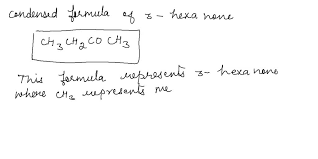 condensed formula of 3 - hexa none
CH3 CH2 CO CH3
This formula represents 3 - hexa none
where CH3 represents me